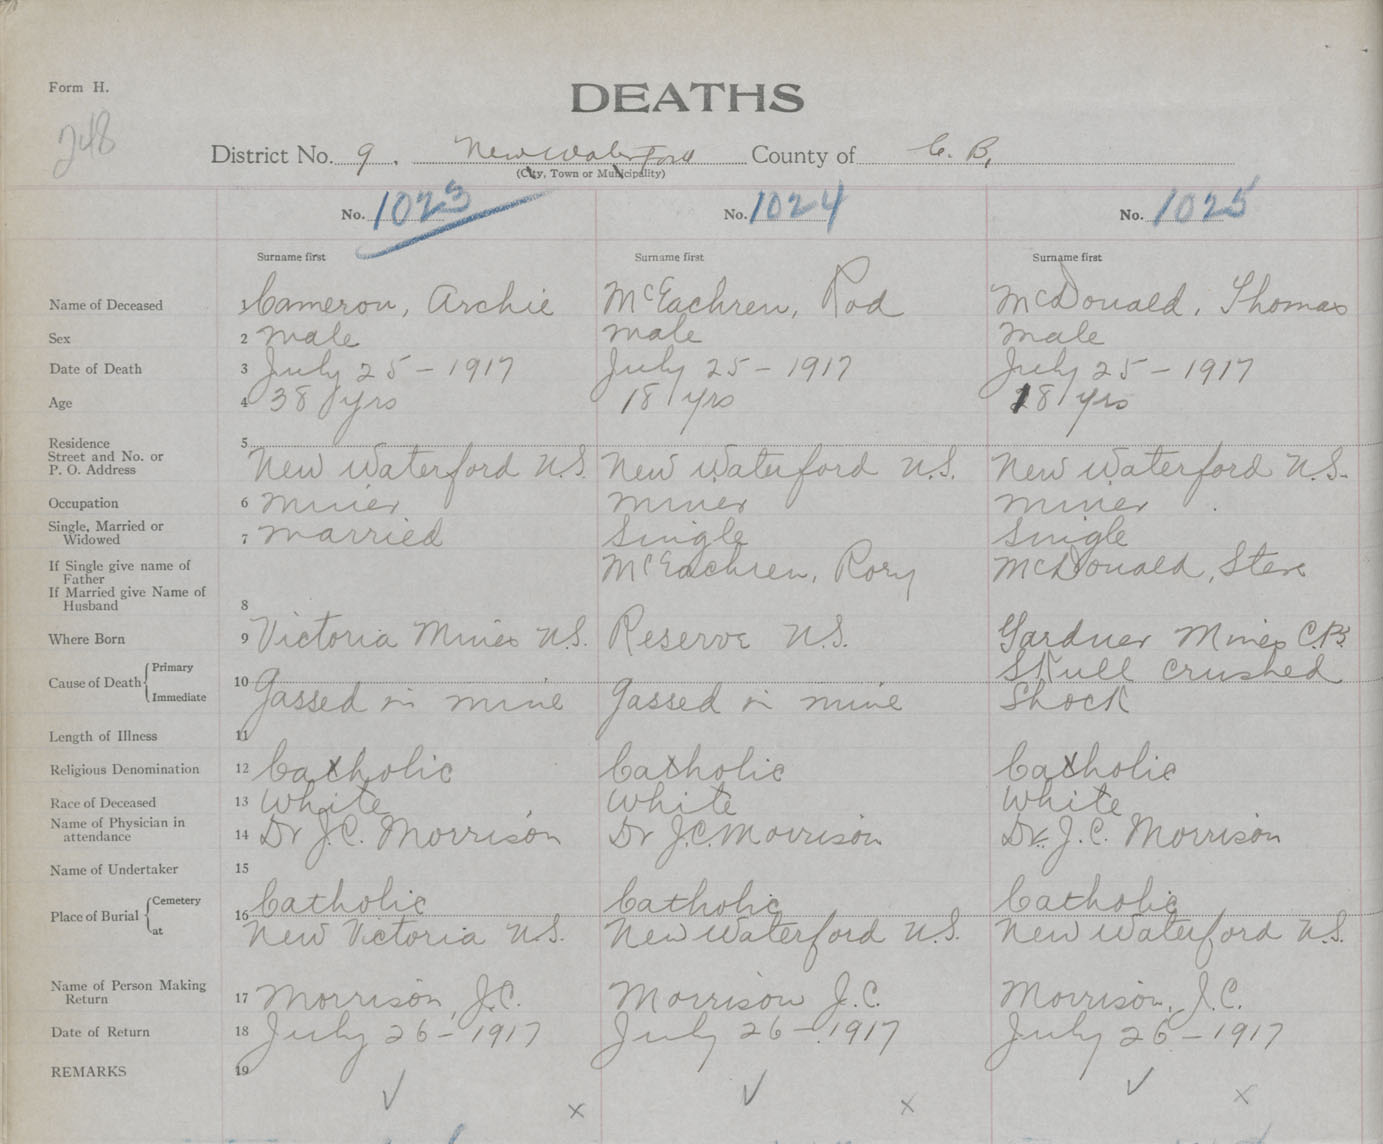 Form H.
DEATHS
248
District No. 9. New Waterford County of C. B.
(City, Town or Municipality)
No. 1023 No. 1024 No. 1025
Surname first Surname first Surname first
Name of Deceased 1 Cameron, Archie McEachren, Rod McDonald, Thomas
Sex 2 male male male
Date of Death 3 July 25 - 1917 July 25 - 1917 July 25 - 1917
Age 4 38 yrs 18 yrs 18 yrs
Residence 5
Street and No. or
P. O. Address New Waterford N.S. New Waterford N.S. New Waterford N.S.
Occupation 6 miner miner miner
Single, Married or
Widowed 7 married Single Single
If Single give name of
Father McEachren, Rory McDonald, Steve
If Married give Name of
Husband 8
Where Born 9 Victoria Mines N.S. Reserve N.S. Gardner Mines C.B.
Cause of Death Primary 10 Skull crushed
Immediate Gassed in mine Gassed in mine Shock
Length of Illness 11
Religious Denomination 12 Catholic Catholic Catholic
Race of Deceased 13 White White White
Name of Physician in
attendance 14 Dr J.C. Morrison Dr J.C. Morrison Dr. J.C. Morrison
Name of Undertaker 15
Place of Burial Cemetery 16 Catholic Catholic Catholic
at New Victoria N.S. New Waterford N.S. New Waterford N.S.
Name of Person Making
Return 17 Morrison, J.C. Morrison J.C. Morrison, J.C.
Date of Return 18 July 26 - 1917 July 26 - 1917 July 26 - 1917
REMARKS 19